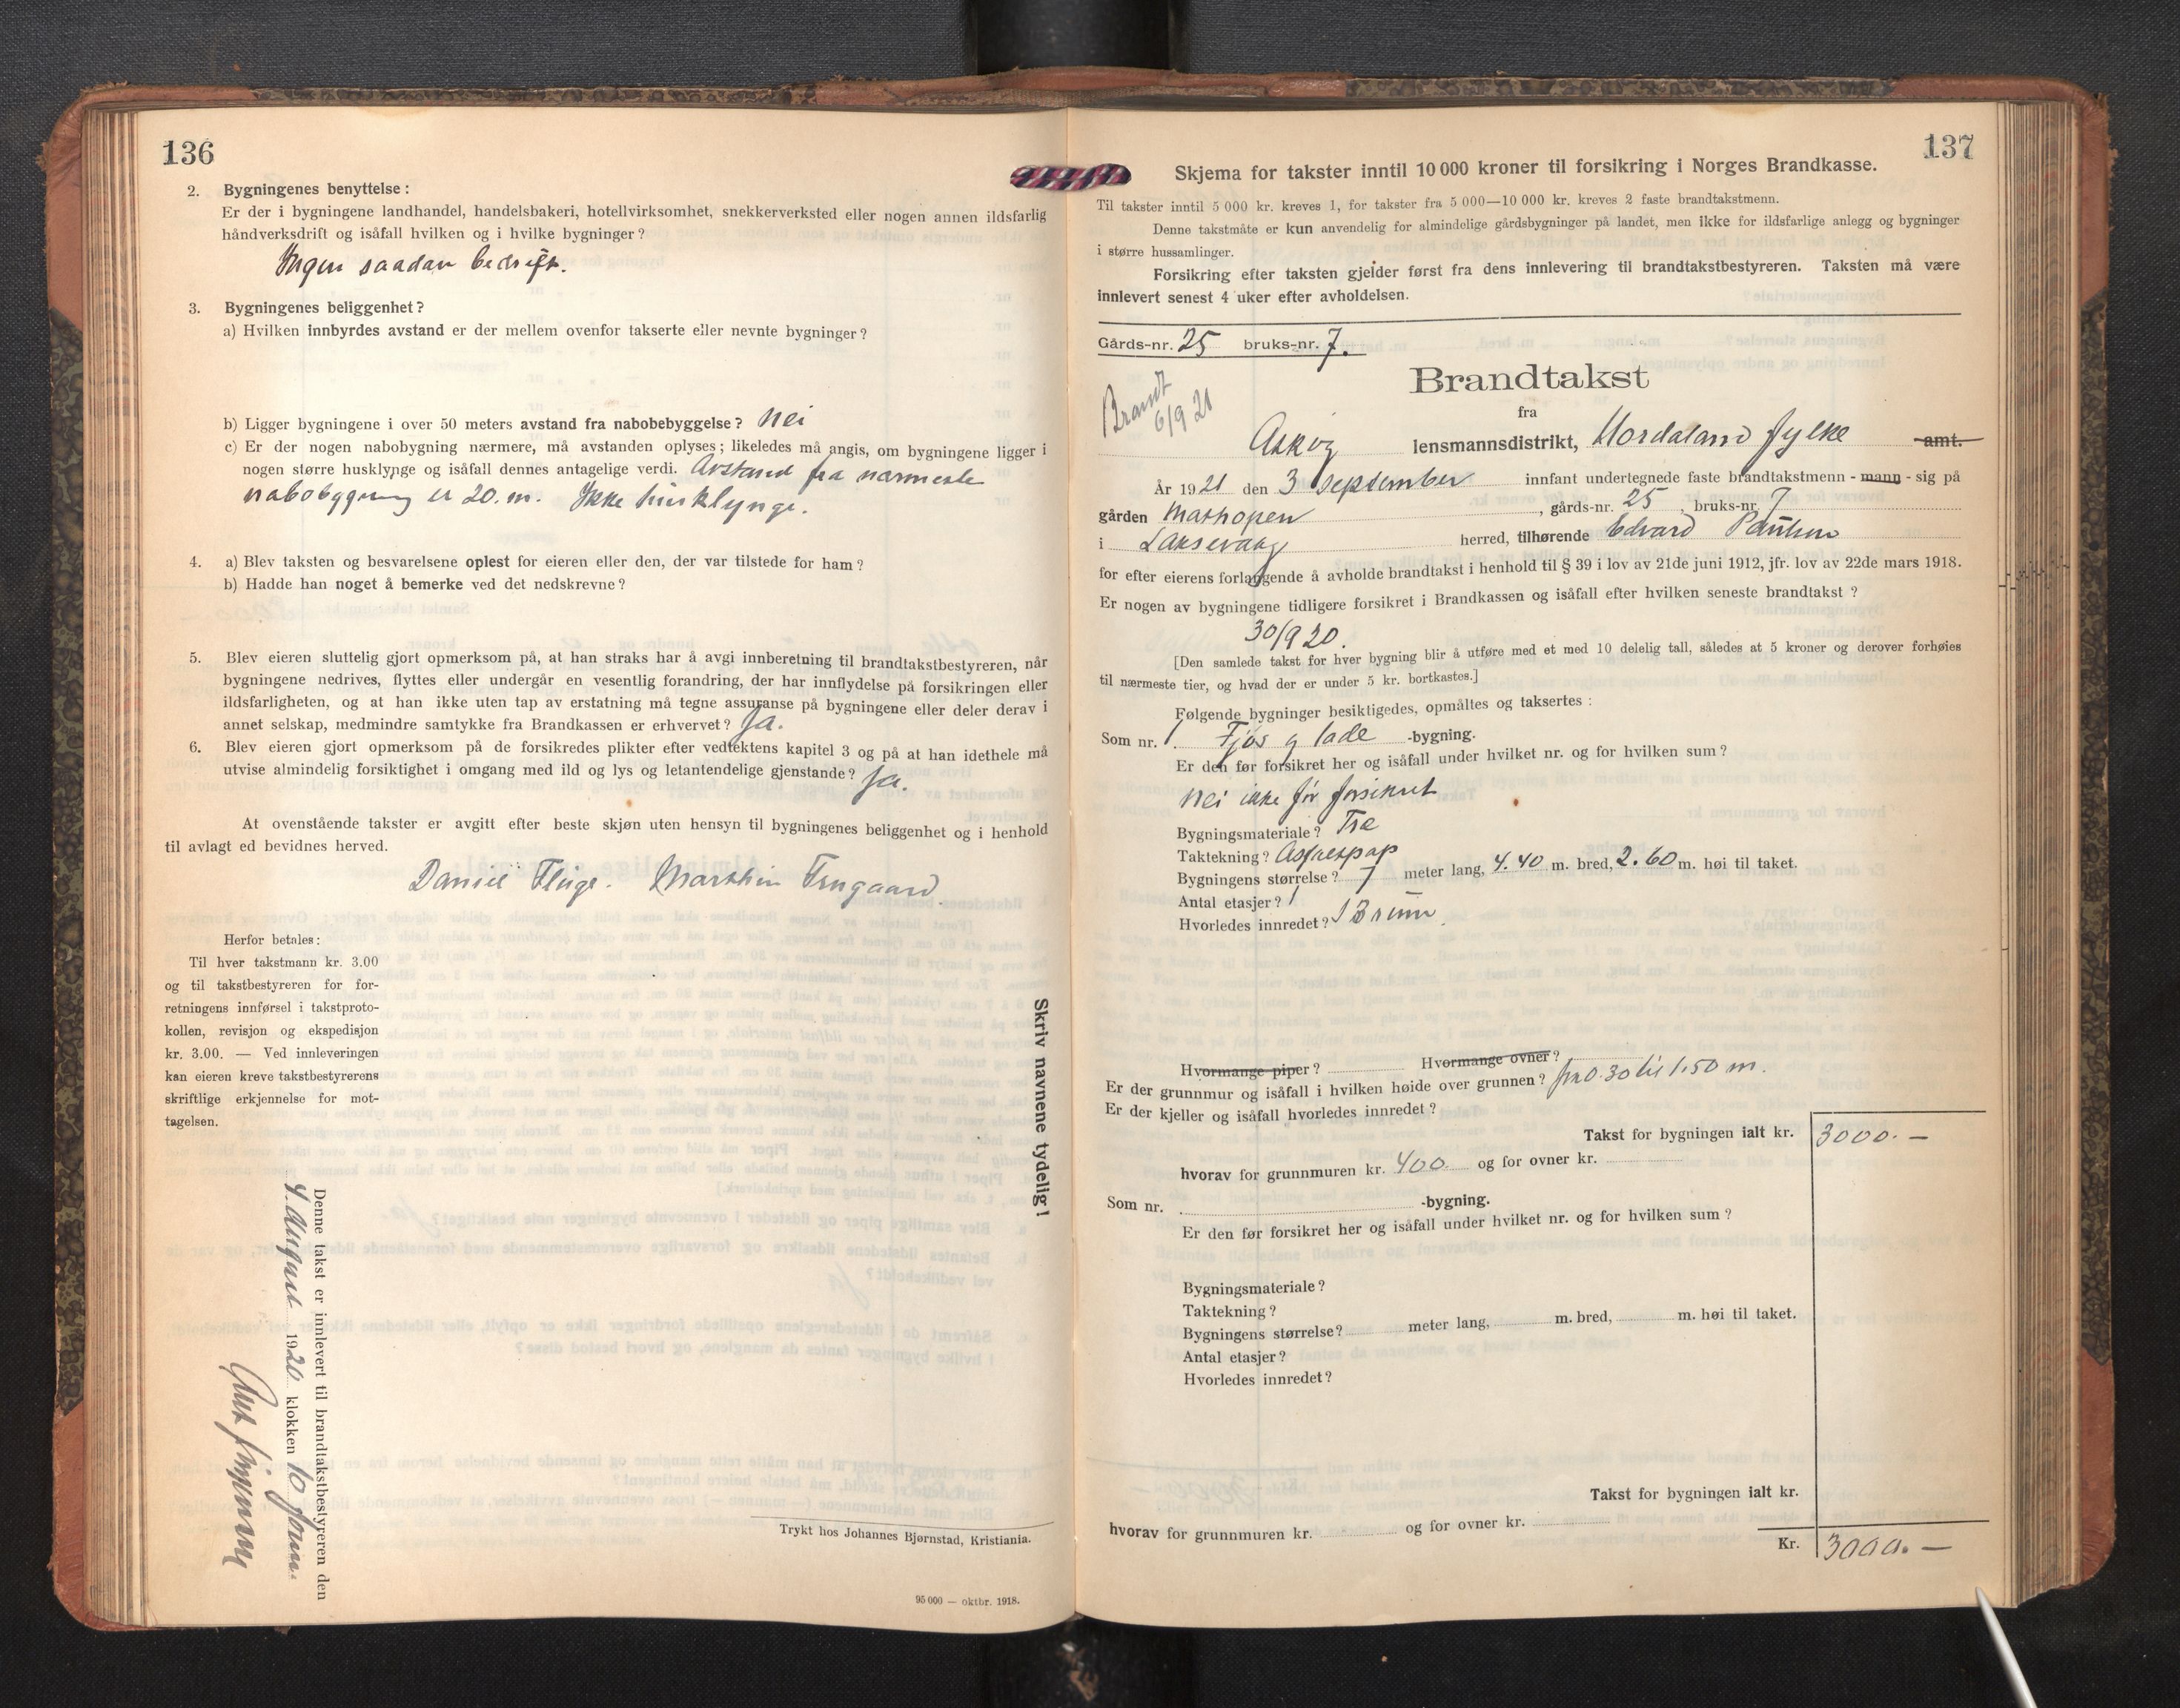 136
2. Bygningenes benyttelse:
Er der i bygningene landhandel, handelsbakeri, hotellvirksomhet, snekkerverksted eller nogen annen ildsfarlig
håndverksdrift og isåfall hvilken og i hvilke bygninger?
Ingen saadan bedrift.
3. Bygningenes beliggenhet?
a) Hvilken innbyrdes avstand er der mellem ovenfor takserte eller nevnte bygninger?
b) Ligger bygningene i over 50 meters avstand fra nabobebyggelse? Nei
c) Er der nogen nabobygning nærmere, må avstanden oplyses; likeledes må angis, om bygningene ligger i
nogen større husklynge og isåfall dennes antagelige verdi. Avstand fra nærmeste
nabobygning er 20. m. Ikke husklynge.
4. a) Blev taksten og besvarelsene oplest for eieren eller den, der var tilstede for ham?
b) Hadde han noget å bemerke ved det nedskrevne?
5. Blev eieren sluttelig gjort opmerksom på, at han straks har å avgi innberetning til brandtakstbestyreren, når
bygningene nedrives, flyttes eller undergår en vesentlig forandring, der har innflydelse på forsikringen eller
ildsfarligheten, og at han ikke uten tap av erstatning må tegne assuranse på bygningene eller deler derav i
annet selskap, medmindre samtykke fra Brandkassen er erhvervet? Ja.
6. Blev eieren gjort opmerksom på de forsikredes plikter efter vedtektens kapitel 3 og på at han idethele må
utvise almindelig forsiktighet i omgang med ild og lys og letantendelige gjenstande? Ja.
At ovenstående takster er avgitt efter beste skjøn uten hensyn til bygningenes beliggenhet og i henhold
til avlagt ed bevidnes herved.
Daniel
Herfor betales:
Til hver takstmann kr. 3.00
og til takstbestyreren for for-
retningens innførsel i takstproto-
kollen, revisjon og ekspedisjon
kr. 3.00. — Ved innleveringen
kan eieren kreve takstbestyrerens
skriftlige erkjennelse for mot-
tagelsen.
Skriv navnene tydelig!
Denne takst er innlevert til brandtakstbestyreren den
4. August 1920 klokken 10 form.
Trykt hos Johannes Bjørnstad, Kristiania.
95 000 — oktbr. 1918.
137
Skjema for takster inntil 10 000 kroner til forsikring i Norges Brandkasse.
Til takster inntil 5 000 kr. kreves 1, for takster fra 5 000—10 000 kr. kreves 2 faste brandtakstmenn.
Denne takstmåte er kun anvendelig for almindelige gårdsbygninger på landet, men ikke for ildsfarlige anlegg og bygninger
i større hussamlinger.
Forsikring efter taksten gjelder først fra dens innlevering til brandtakstbestyreren. Taksten må være
innlevert senest 4 uker efter avholdelsen.
Gårds-nr. 25 bruks-nr. 7.
Brandt
6/9 21
Brandtakst
fra
Askøy lensmannsdistrikt, Hordaland fylke amt.
År 1921 den 3 september innfant undertegnede faste brandtakstmenn - mann - sig på
gården Mathopen, gårds-nr. 25, bruks-nr. 7
i Laksevaag herred, tilhørende Edvard Paulsen
for efter eierens forlangende å avholde brandtakst i henhold til § 39 i lov av 21de juni 1912, jfr. lov av 22de mars 1918.
Er nogen av bygningene tidligere forsikret i Brandkassen og isåfall efter hvilken seneste brandtakst?
30/9 20.
[Den samlede takst for hver bygning blir å utføre med et med 10 delelig tall, således at 5 kroner og derover forhøies
til nærmeste tier, og hvad der er under 5 kr. bortkastes.]
Følgende bygninger besiktigedes, opmåltes og taksertes:
Som nr. 1 Fjøs g lade -bygning.
Er den før forsikret her og isåfall under hvilket nr. og for hvilken sum?
Nei ikke før forsikret
Bygningsmateriale? Træ
Taktekning? Asfaltpap
Bygningens størrelse? 7 meter lang, 4.40 m. bred, 2.60 m. høi til taket.
Antal etasjer? 1
Hvorledes innredet? I 3 rum.
Hvormange piper? Hvormange ovner?
Er der grunnmur og isåfall i hvilken høide over grunnen? fra 0.30 til 1.50 m.
Er der kjeller og isåfall hvorledes innredet?
Takst for bygningen ialt kr. 3000.—
hvorav for grunnmuren kr. 400. og for ovner kr.
Som nr. -bygning.
Er den før forsikret her og isåfall under hvilket nr. og for hvilken sum?
Bygningsmateriale?
Taktekning?
Bygningens størrelse? meter lang, m. bred, m. høi til taket.
Antal etasjer?
Hvorledes innredet?
Takst for bygningen ialt kr.
hvorav for grunnmuren kr. og for ovner kr.
Kr. 3000.—